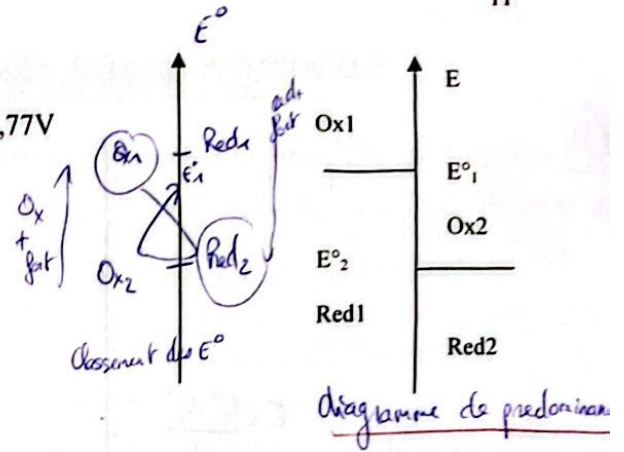 E°
,77V
Ox1
Red1
E°1
Ox
+
fort
red +
fort
Ox2
Red2
Classement des E°
E
Ox1
E°1
Ox2
E°2
Red1
Red2
diagramme de predominan